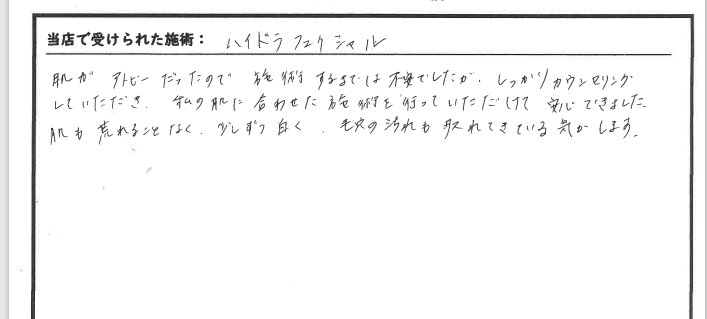 当店で受けられた施術： ハイドラフェイシャル
肌が アトピーだったので 施術するまでは不安でしたが、しっかりカウンセリング
していただき、私の肌に合わせた施術を行っていただけて 安心できました。
肌も荒れることなく、少しずつ白く、毛穴の汚れも取れてきている気がします。